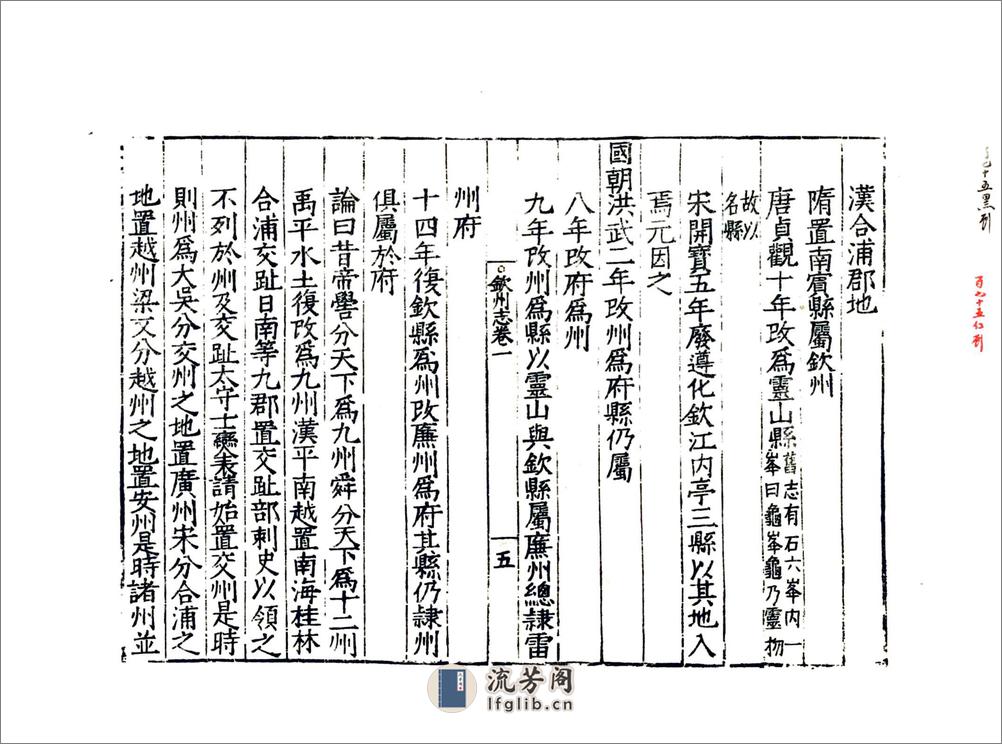 漢合浦郡地
隋置南賓縣屬欽州
唐貞觀十年改爲靈山縣舊志有石六峯内一峯曰龜峯龜乃靈物
故以名縣
宋開寶五年廢遵化欽江内亭三縣以其地入
焉元因之
國朝洪武二年改州爲府縣仍屬
八年改府爲州
九年改州爲縣以靈山與欽縣屬廉州總隷雷
欽州志卷一
五
州府
十四年復欽縣爲州改廉州爲府其縣仍隷州
俱屬於府
論曰昔帝嚳分天下爲九州舜分天下爲十二州
禹平水土復改爲九州漢平南越置南海桂林
合浦交趾日南等九郡置交趾部刺史以領之
不列於州及交趾太守士爕表請始置交州是時
則州爲大吳分交州之地置廣州宋分合浦之
地置越州梁又分越州之地置安州是時諸州並
流芳阁
lfglib.cn